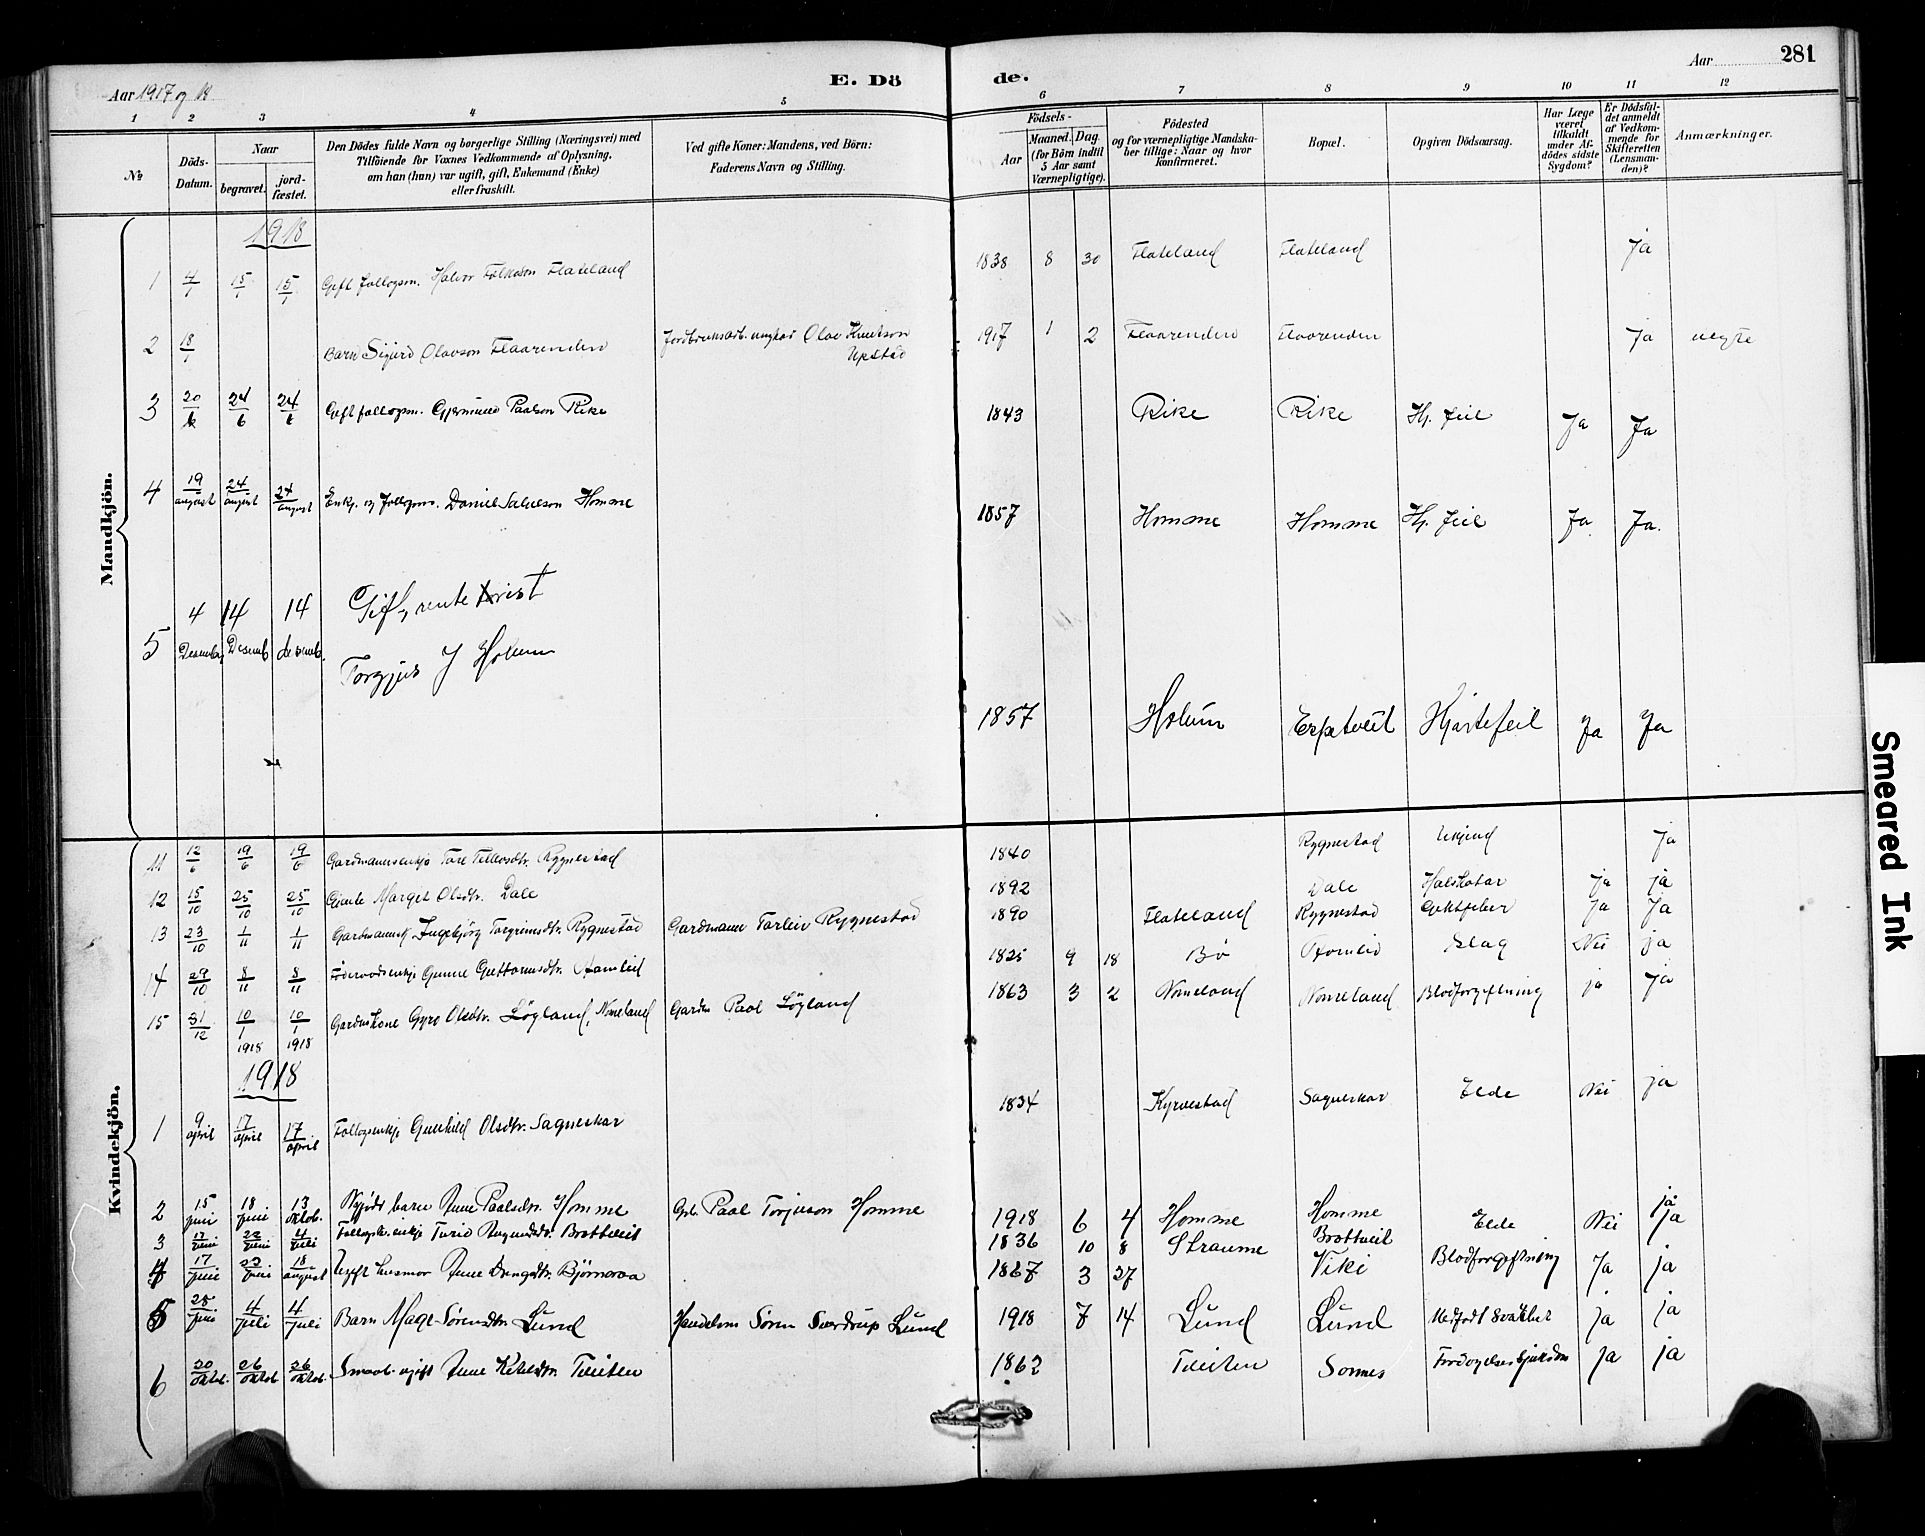 Aar 1917 og 18
E. Dö
de.
Aar
281
1 2 3 4 5 6 7 8 9 10 11 12
No
Döds-Datum.
Naar
begravet.
jordfæstet.
Den Dödes fulde Navn og borgerlige Stilling (Næringsvei) med
Tilföiende for Voxnes Vedkommende af Oplysning,
om han (hun) var ugift, gift, Enkemand (Enke)
eller fraskilt.
Ved gifte Koner: Mandens, ved Börn:
Faderens Navn og Stilling.
Födsels-
Aar
Maaned.
Dag.
(for Börn indtil
5 Aar samt
Værnepligtige).
Födested
og for værnepligtige Mandska-
ber tillige: Naar og hvor
konfirmeret.
Bopæl.
Opgiven Dödsaarsag.
Har Læge
været
tilkaldt
under Af-
dödes sidste
Sygdom?
Er Dödsfal-
det anmeldt
af Vedkom-
mende for
Skifteretten
(Lensman-
den)?
Anmærkninger.
Mandkjön.
1918
1 4/1 15/1 15/1 Gift follogsm. Halvor Folkeson Flateland 1838 8 30 Flateland Flateland ja
2 18/1 Barn Sigurd Olavson Flaarenden Jordbruksarb. ungkar Olav Knutson Upstad 1917 1 2 Flaarenden Flaarenden ja uegte
3 20/6 24/6 24/6 Gift follogsm. Gjermund Paalson Rike 1843 Rike Rike Hj. feil Ja Ja
4 19/august 24/august 24/august Enkj. og follogsm. Daniel Salveson Homme 1857 Homme Homme Hj. feil Ja Ja.
5 4 Desember 14 Desemb 14 desemb. Gift, rentekrist
Torgjus J Holum 1857 Holum Erpstveit Hjartefeil Ja Ja
Kvindekjön.
11 12/6 19/6 19/6 Gardmannsenkje Tore Tellevsdtr. Rygnestad 1840 Rygnestad Ukjend Ja
12 15/10 25/10 25/10 Gjente Margit Olsdtr. Dale 1892 Dale Halskatar ja ja
13 23/10 1/11 1/11 Gardmannsk Ingebjörg Torgrimsdtr. Rygnestad Gardmann Tarleiv Rygnestad 1890 Flateland Rygnestad Giktfeber Ja Ja
14 29/10 8/11 8/11 Föderaadsenkje Gunne Guttormsdtr. 1825 9 18 Bø Slag Nei ja
15 31/12 10/1 1918 10/1 1918 Gardmskone Gyro Olsdtr. Löyland, Nomeland Gardm Paal Löyland 1863 3 2 Nomeland Nomeland Blodforgiftning ja ja
1918
1 9/april 17/april 17/april Follogsenkje Gunhild Olsdtr. Sagneskar 1834 Kyrvestad Sagneskar Elde Nei ja
2 15/juni 18/juni 13/oktob. Nyfödt barn Anne Paalsdtr. Homme Gbr. Paal Torjuson Homme 1918 6 4 Homme Homme ja
3 17/juni 22/juni 4/juli Follogsk. enkje Turid Bragundsdtr. Brottveit 1836 10 8 Straume Brottveit Elde Nei Ja
4 17/juni 23/juni 18/august Ugift husmor Anne Drengsdtr. Björnaraa 1867 3 27 Viki Blodforgiftning Ja ja
5 28/juni 4/juli 4/juli Barn Mage Sörensdtr. Lund Handelsm Sören Sverdrup Lund 1918 7 14 Lund Lund Medfødt svakhet ja ja
6 20/oktob. 26/oktob 26/oktob. Smaab. ugift Anne Ketilsdtr. Tveiten 1862 Tveiten Sonnes ja ja
Smeared Ink